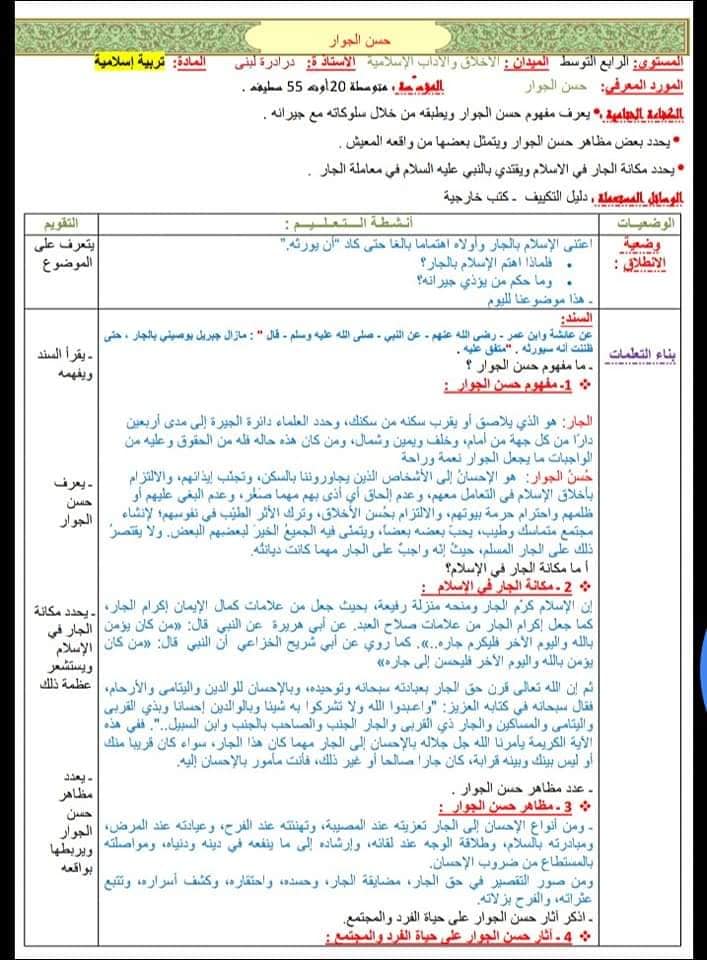 حسن الجوار
المستوى: الرابع التوسط الميدان : الأخلاق والآداب الإسلامية الأستاذة: درادرة لبنى المادة: تربية إسلامية
المورد المعرفي: حسن الجوار المؤسسة : متوسطة 20أوت 55 سطيف .
الكفاءة الختامية :• يعرف مفهوم حسن الجوار ويطبقه من خلال سلوكاته مع جيرانه .
• يحدد بعض مظاهر حسن الجوار ويتمثل بعضها من واقعه المعيش .
• يحدد مكانة الجار في الاسلام ويقتدي بالنبي عليه السلام في معاملة الجار .
الوسائل المستعملة : دليل التكييف ـ كتب خارجية
الوضعيات أنشطة التـعـلـيـم : التقويم
وضعية الانطلاق :
اعتنى الإسلام بالجار وأولاه اهتماما بالغا حتى كاد "أن يورثه."
• فلماذا اهتم الإسلام بالجار؟
• وما حكم من يؤذي جيرانه؟
ـ هذا موضوعنا لليوم
يتعرف على
الموضوع
بناء التعلمات
السند:
عن عائشة وابن عمر - رضي الله عنهم - عن النبي - صلى الله عليه وسلم - قال " : مازال جبريل يوصيني بالجار ، حتى
ظننت أنه سيورثه . "متفق عليه .
ـ ما مفهوم حسن الجوار ؟
❖ 1ـ مفهوم حسن الجوار :
الجار: هو الذي يلاصق أو يقرب سكنه من سكنك، وحدد العلماء دائرة الجيرة إلى مدى أربعين
دارًا من كل جهة من أمام، وخلف ويمين وشمال، ومن كان هذه حاله فله من الحقوق وعليه من
الواجبات ما يجعل الجوار نعمة وراحة
حُسنُ الجوار: هو الإحسانُ إلى الأشخاص الذين يجاوروننا بالسكن، وتجنّب إيذائهم، والالتزام
بأخلاق الإسلام في التعامل معهم، وعدم إلحاق أي أذى بهم مهما صغُر، وعدم البغي عليهم أو
ظلمهم واحترام حرمة بيوتهم، والالتزام بحُسن الأخلاق، وترك الأثر الطيّب في نفوسهم؛ لإنشاء
مجتمع متماسك وطيب، يحبّ بعضه بعضاً، ويتمنى فيه الجميعُ الخيرَ لبعضهم البعض. ولا يقتصرُ
ذلك على الجار المسلم، حيثُ إنه واجبٌ على الجار مهما كانت ديانتُه.
أ ما مكانة الجار في الإسلام؟
❖ 2 ـ مكانة الجار في الإسلام :
إن الإسلام كرّم الجار ومنحه منزلة رفيعة، بحيث جعل من علامات كمال الإيمان إكرام الجار،
كما جعل إكرام الجار من علامات صلاح العبد. عن أبي هريرة عن النبي قال: «من كان يؤمن
بالله واليوم الآخر فليكرم جاره..». كما روي عن أبي شريح الخزاعي أن النبي قال: «من كان
يؤمن بالله واليوم الآخر فليحسن إلى جاره»
ثم إن الله تعالى قرن حق الجار بعبادته سبحانه وتوحيده، وبالإحسان للوالدين واليتامى والأرحام،
فقال سبحانه في كتابه العزيز: "واعبدوا الله ولا تشركوا به شيئا وبالوالدين إحسانا وبذي القربى
واليتامى والمساكين والجار ذي القربى والجار الجنب والصاحب بالجنب وابن السبيل..". ففي هذه
الآية الكريمة يأمرنا الله جل جلاله بالإحسان إلى الجار مهما كان هذا الجار، سواء كان قريبا منك
أو ليس بينك وبينه قرابة، كان جارا صالحا أو غير ذلك، فأنت مأمور بالإحسان إليه.
ـ عدد مظاهر حسن الجوار .
❖ 3 ـ مظاهر حسن الجوار :
ـ ومن أنواع الإحسان إلى الجار تعزيته عند المصيبة، وتهنئته عند الفرح، وعيادته عند المرض،
ومبادرته بالسلام، وطلاقة الوجه عند لقائه، وإرشاده إلى ما ينفعه في دينه ودنياه، ومواصلته
بالمستطاع من ضروب الإحسان.
ومن صور التقصير في حق الجار، مضايقة الجار، وحسده، واحتقاره، وكشف أسراره، وتتبع
عثراته، والفرح بزلاته.
ـ اذكر آثار حسن الجوار على حياة الفرد والمجتمع.
❖ 4 ـ آثار حسن الجوار على حياة الفرد والمجتمع :
ـ يقرأ السند
ويفهمه
ـ يعرف
حسن
الجوار
ـ يحدد مكانة
الجار في
الإسلام
ويستشعر
عظمة ذلك
ـ يعدد
مظاهر
حسن
الجوار
ويربطها
بواقعه